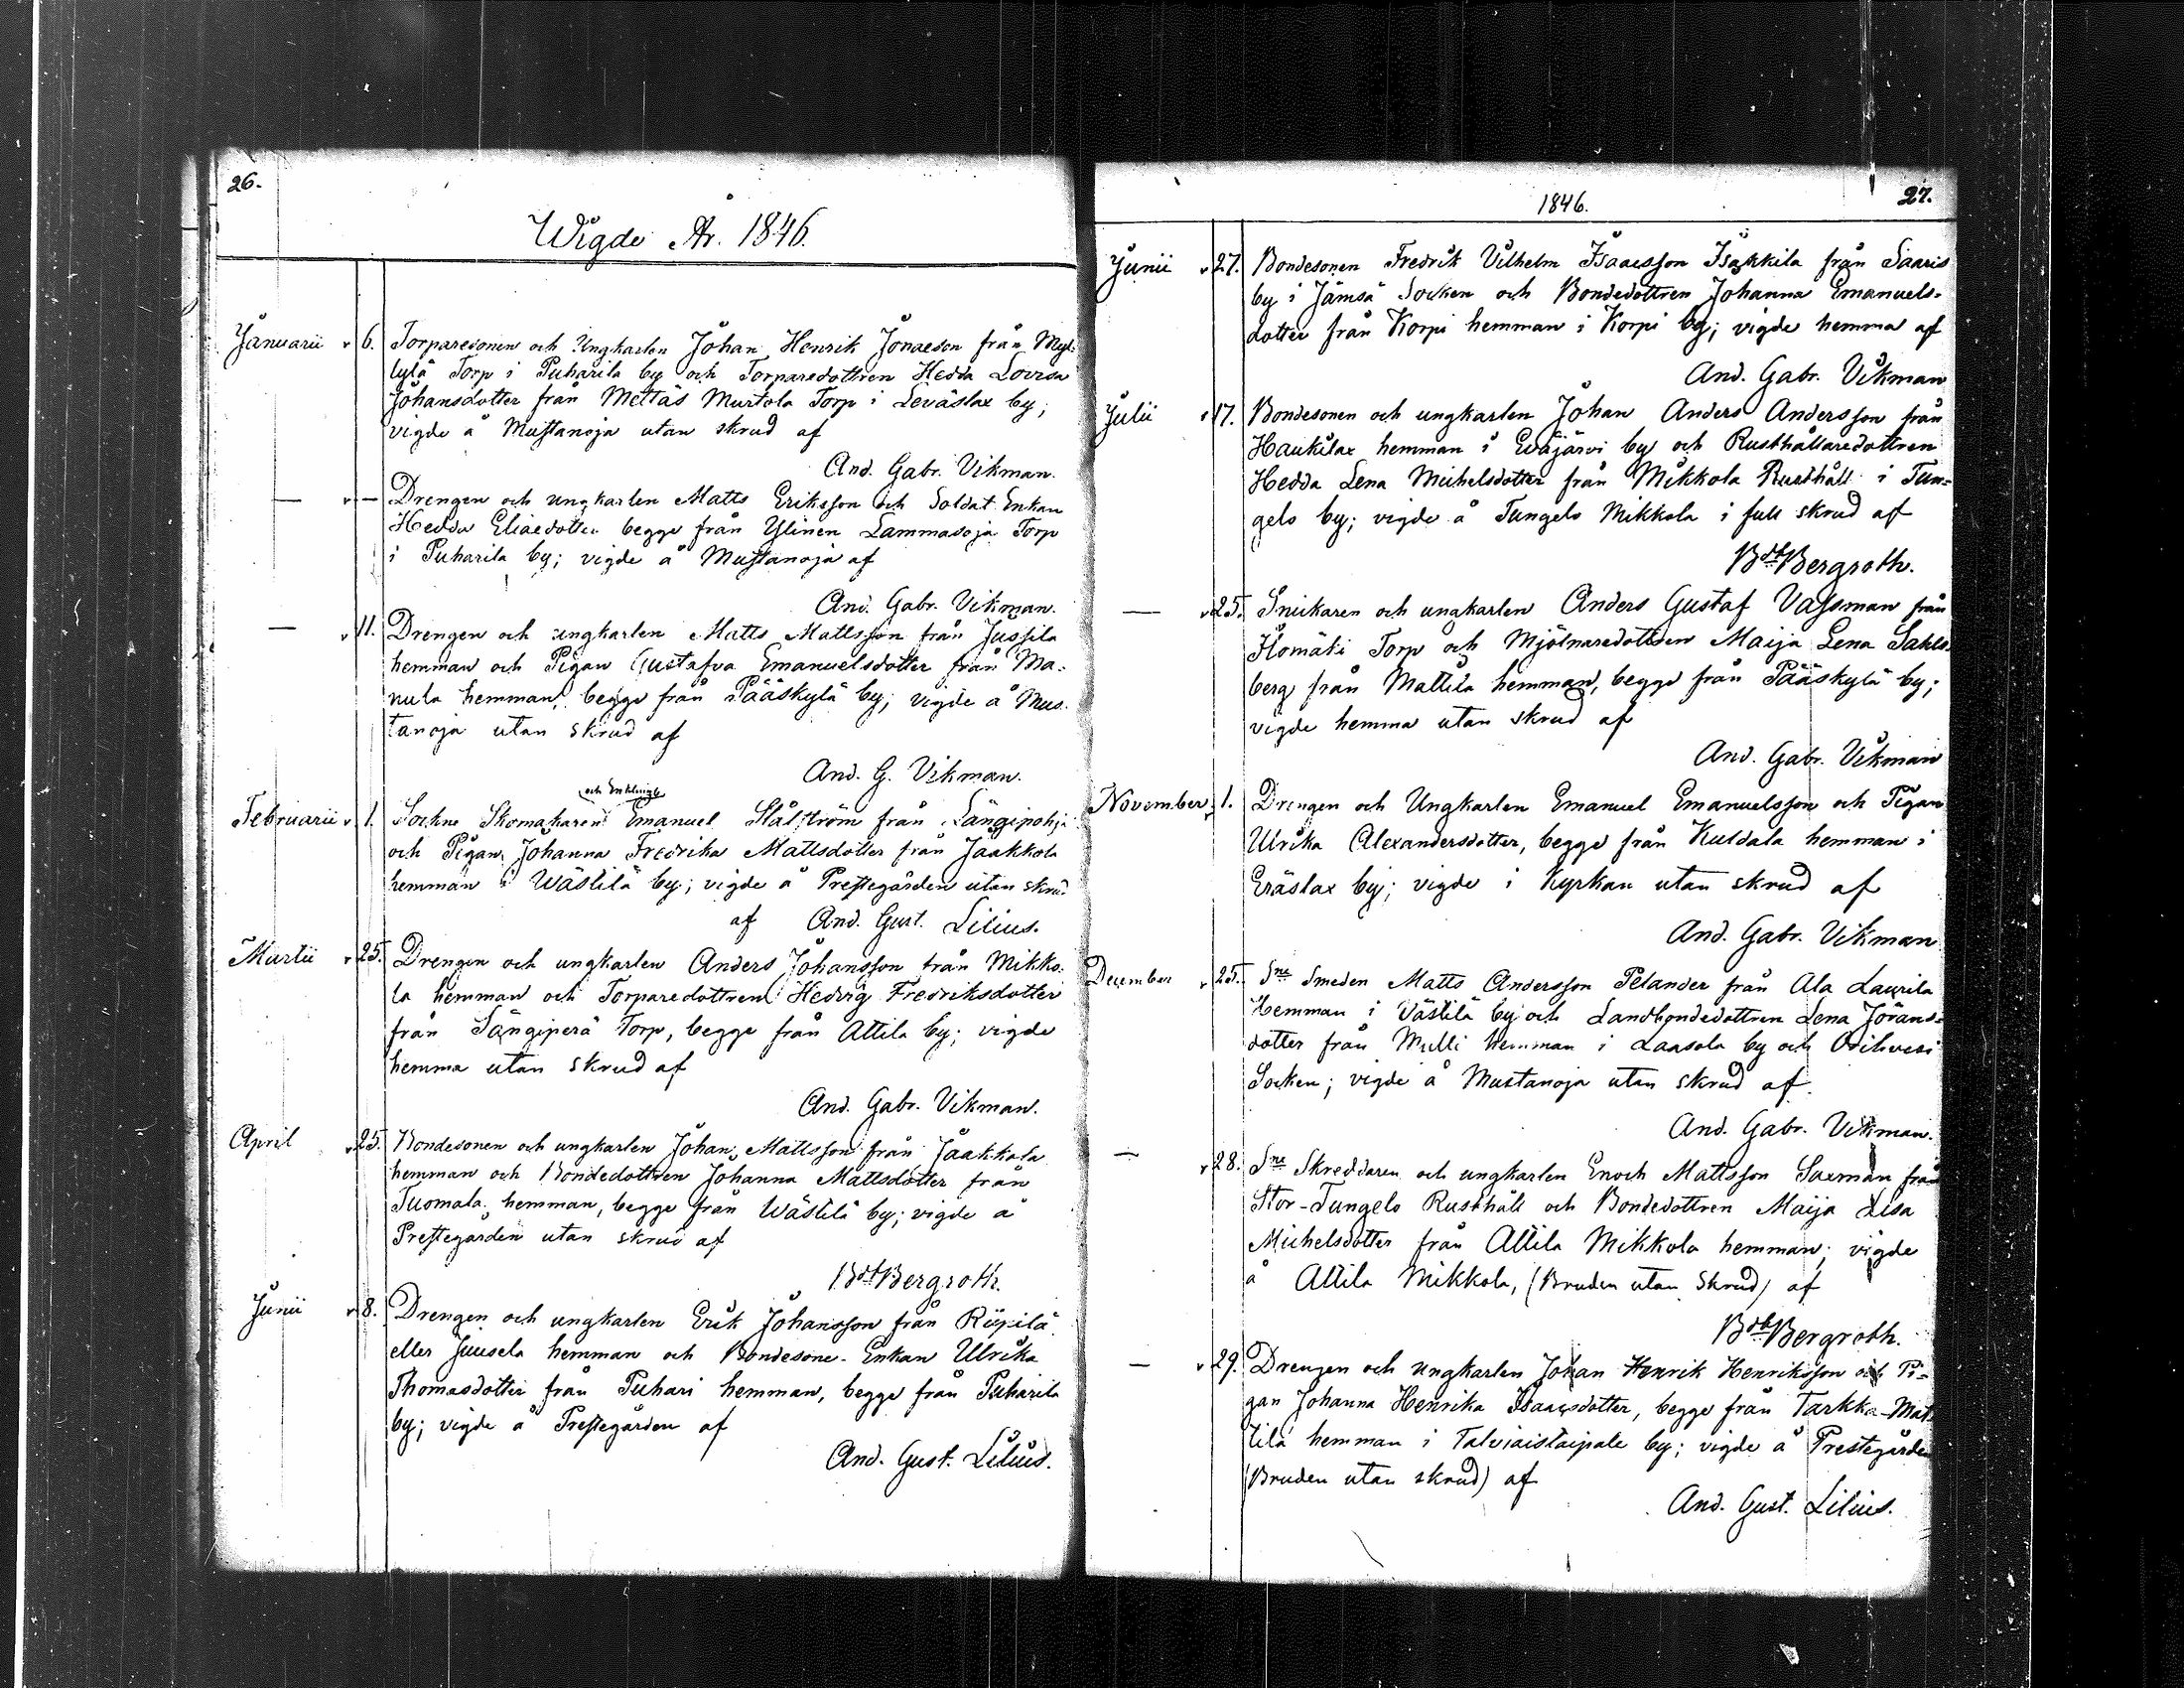 26.
Wigde År. 1846.
Januarii v 6. Torparesonen och Ungkarlen Johan Henrik Jonaeson från Myl-
lylä Torp i Puharila by och Torparedottren Hedda Lovisa
Johansdotter från Mettäs Murtola Torp i Leväslax by;
vigde å Mustanoja utan skrud af
And. Gabr. Vikman.
— v — Drengen och ungkarlen Matts Eriksson och Soldat Enkan
Hedda Eliaedotter begge från Ylinen Lammasoja Torp
i Puharila by; vigde å Mustanoja af
And. Gabr. Vikman.
— v 11. Drengen och ungkarlen Matts Mattsson från Jussila
hemman och Pigan Gustafva Emanuelsdotter från Ma-
nula hemman, begge från Pääskylä by; vigde å Mus-
tanoja utan skrud af
And. G. Vikman.
och Enklinge
Februarii v 1. Sockne Skomakaren Emanuel Stålström från Längipohja
och Pigan Johanna Fredrika Mattsdotter från Jaakkola
hemman i Wästilä by; vigde å Prestegården utan skrud
af And. Gust. Lilius.
Martii v 25. Drengen och ungkarlen Anders Johansson från Mikko-
la hemman och Torparedottren Hedvig Fredriksdotter
från Sängiperä Torp, begge från Attila by; vigde
hemma utan skrud af
And. Gabr. Vikman.
April v 25. Bondesonen och ungkarlen Johan Mattsson från Jaakkola
hemman och Bondedottren Johanna Mattsdotter från
Tuomala hemman, begge från Wästilä by; vigde å
Prestegården utan skrud af
Bdt Bergroth.
Junii v 8. Drengen och ungkarlen Erik Johansson från Riipilä
eller Juusela hemman och Bondesone-Enkan Ulrika
Thomasdotter från Puhari hemman, begge från Puharila
by; vigde å Prestegården af
And. Gust. Lilius.
1846. 27.
Junii v 27. Bondesonen Fredrik Vilhelm Isaacsson Isakkila från Saaris
by i Jämsä Socken och Bondedottren Johanna Emanuels-
dotter från Korpi hemman i Korpi by; vigde hemma af
And. Gabr. Vikman
Julii v 17. Bondesonen och ungkarlen Johan Anders Andersson från
Haukilax hemman i Eväjärvi by och Rusthållaredottren
Hedda Lena Michelsdotter från Mikkola Rusthåll i Tun-
gelo by; vigde å Tungelo Mikkola i full skrud af
Bdt Bergroth.
— v 25. Snickaren och ungkarlen Anders Gustaf Vassman från
Ilomäki Torp och Mjölnaredottren Maija Lena Sahls-
berg från Mattila hemman, begge från Pääskylä by;
vigde hemma utan skrud af
And. Gabr. Vikman
November v 1. Drengen och Ungkarlen Emanuel Emanuelsson och Pigan
Ulrika Alexandersdotter, begge från Kuldala hemman i
Eräslax by; vigde i Kyrkan utan skrud af
And. Gabr. Vikman
December v 25. Sne Smeden Matts Andersson Pelander från Ala Laurila
Hemman i Västilä by och Landbondedottren Lena Jörans-
dotter från Mulli hemman i Laasola by och Orihvesi
Socken; vigde å Mustanoja utan skrud af
And. Gabr. Vikman.
— v 28. Sne Skreddaren och ungkarlen Enoch Mattsson Saxman från
Stor-Tungelo Rusthåll och Bondedottren Maija Lisa
Michelsdotter från Attila Mikkola hemman; vigde
å Attila Mikkola, (Bruden utan skrud) af
Bdt Bergroth.
— v 29. Drengen och ungkarlen Johan Henrik Henriksson och Pi-
gan Johanna Henrika Isaacsdotter, begge från Tarkka-Mat-
tila hemman i Talviaistaipale by; vigde å Prestegården
(Bruden utan skrud) af
And. Gust. Lilius.